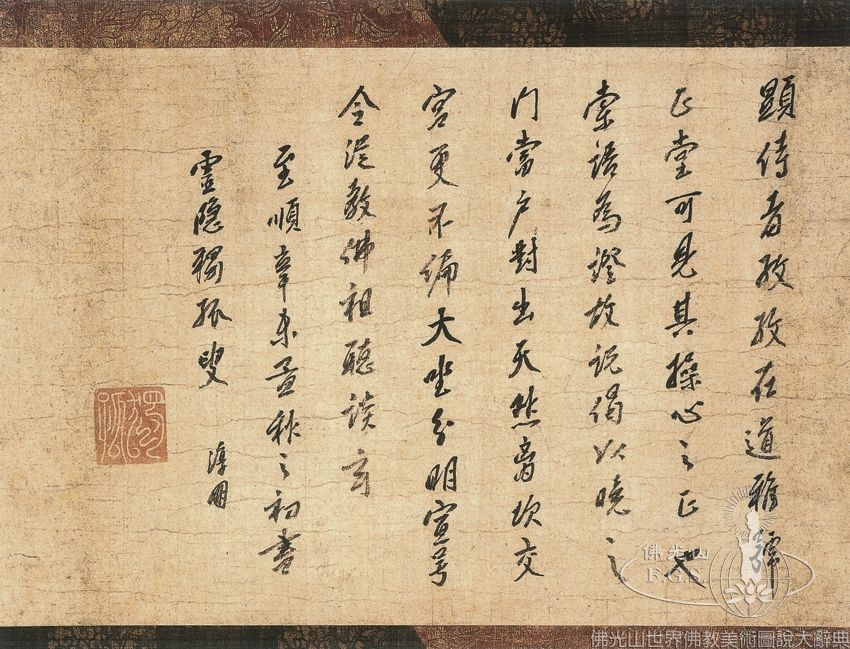 顕侍者孜孜在道雅號
正堂可見其操心之正也
索語為證故説偈以曉之
門當戶對出天然离坎交
宮更不偏大坐分明宣号
令從教佛祖聽談玄
至順辛未孟秋之初書
靈隠獨孤叟 淳朋
佛光山
F.G.S.
佛光山世界佛教美術圖說大辭典